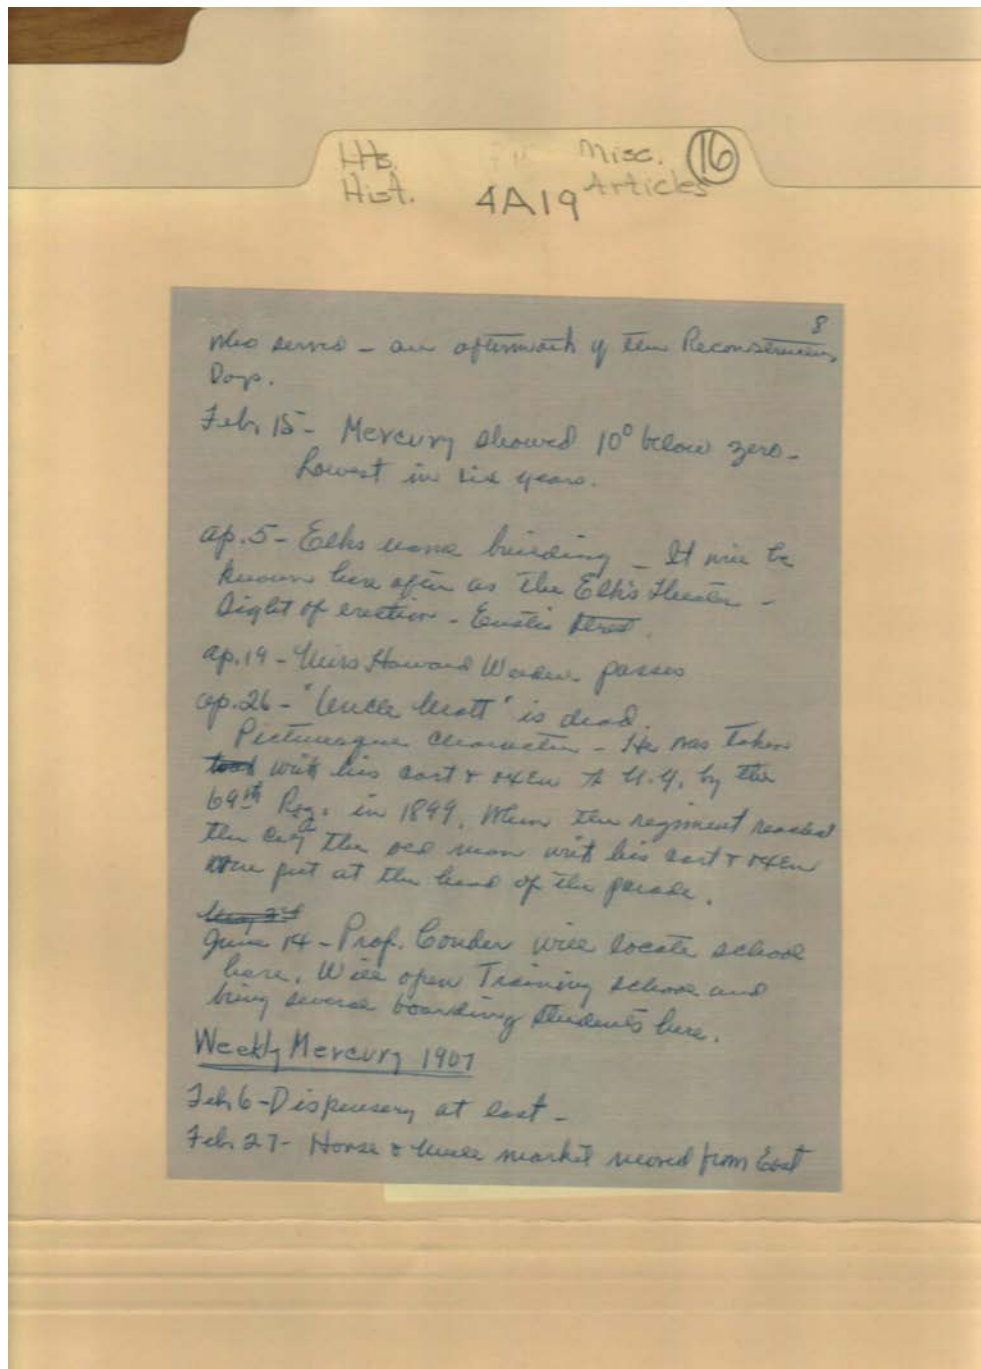 Hts. Misc. 16
Hist. 4A19 Articles
8
who served - an aftermath of the Reconstruction
Days.
Feb. 15 - Mercury showed 10° below zero -
Lowest in six years.
Ap. 5 - Elks name building - It will be
known here after as the Elk's Theater -
Sight of erection - Eustis
Ap. 19 - Miss Howard Weeden passes
Ap. 26 - "Uncle Matt" is dead.
Picturesque character - He was taken
with his cart & oxen to N.Y. by the
69th Reg. in 1899. When the regiment reached
the city the old man with his cart & oxen
were put at the head of the parade.
June 14 - Prof. Conder will locate school
here. Will open Training school and
bring several boarding students here.
Weekly Mercury 1907
Feb 6 - Dispensary at last -
Feb. 27 - Horse & Mule market moved from East